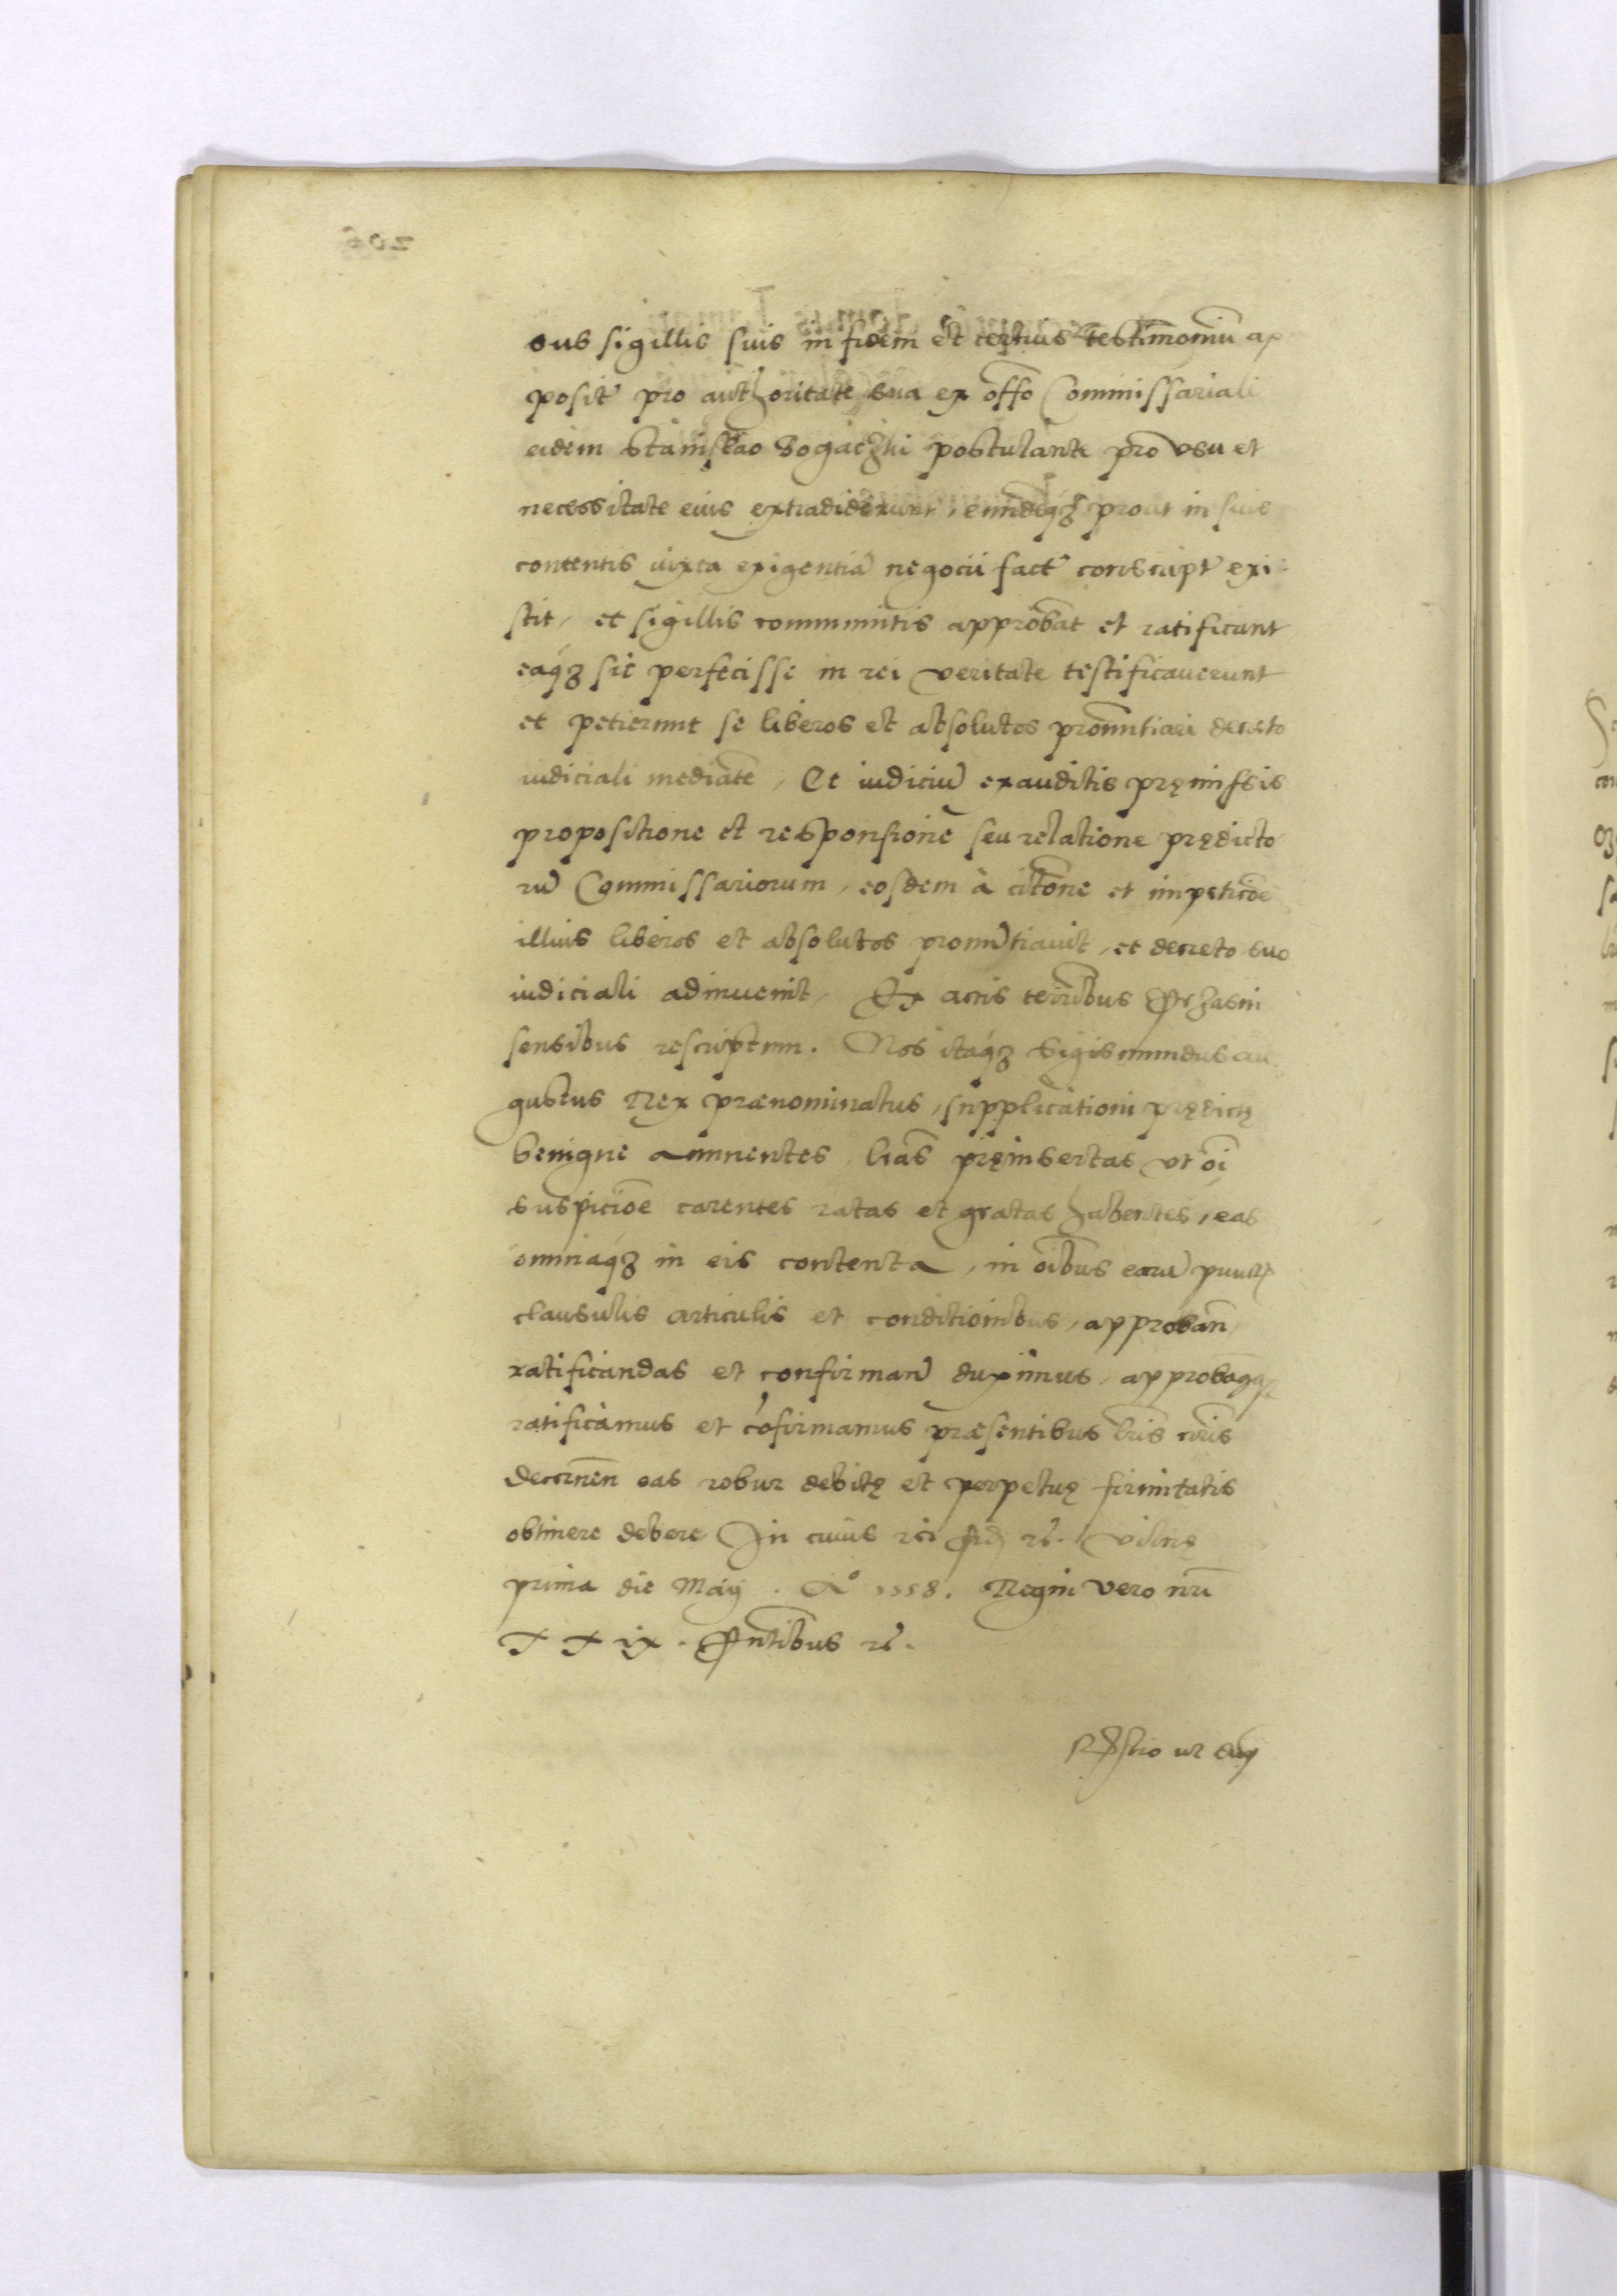 ous sigillis suis in fidem et certius testimoniũ ap
posit pro authoritate sua ex offo Commissariali
eidem Stanislao Bogaczki postulante pro vsu et
necessitate eius extradiderunt, eundẽq3 prout in suis
contentis iuxta exigentiã negocii fact conscript exi
stit, et sigillis communitis approbãt et ratificant
eaq3 sic perfecisse in rei veritate testificauerunt
et petierunt se liberos et absolutos pronũntiari decreto
iudiciali mediãte, Et iudiciũ exauditis pręmissis
propositione et responsione seu relatione prędicto
rũ Commissariorum, eosdem à citõne et impeticõe
illius liberos et absolutos pronũtiauit, et decreto suo
iudiciali adinuenit, Ex actis terrĩbus
sensibus rescriptum. Nos itaq3 Sigismundus au
gustus Rex prænominatus, supplicationi prędictę
benigne annuentes, lrãs pręinsertas vt oĩ
suspiciõe carentes ratas et gratas habentes, eas
omniaq3 in eis contenta, in oĩbus earũ punct
clausulis articulis et conditionibus, approbañ
ratificandas et confirmanđ duximus, approbãq3
ratificamus et cõfirmamus præsentibus lrĩs nrĩs
decerneñ eas robur debitę et perpetuę firmitatis
obtinere debere In cuius rei fid rc. Vilnę
prima die Maij. Aº 1558. Regni vero nrĩ
XXIX. Pñtibus rc.
ut sup